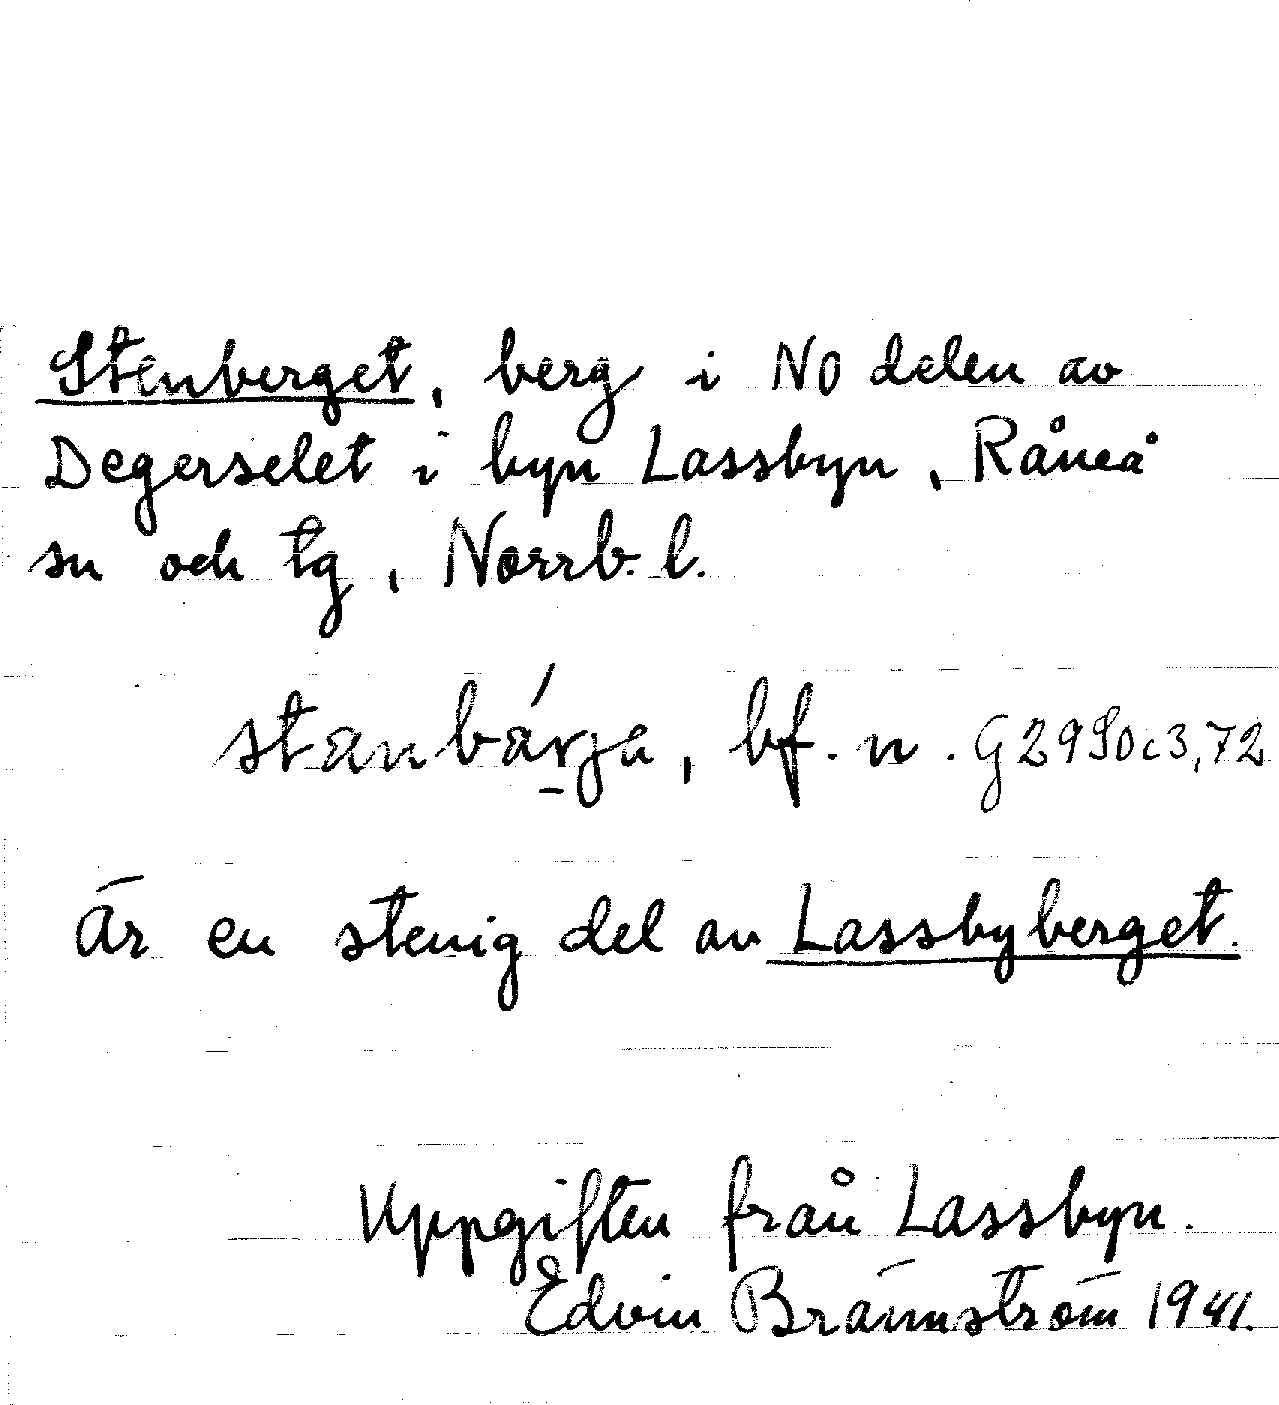 Stenberget, berg i NO delen av
Degerselet i byn Lassbyn, Råneå
sn och tg, Norrb. l.
stanbárja, bf. n.
Är en stenig del av Lassbyberget.
Uppgiften från Lassbyn.
Edvin Brännström 1941.